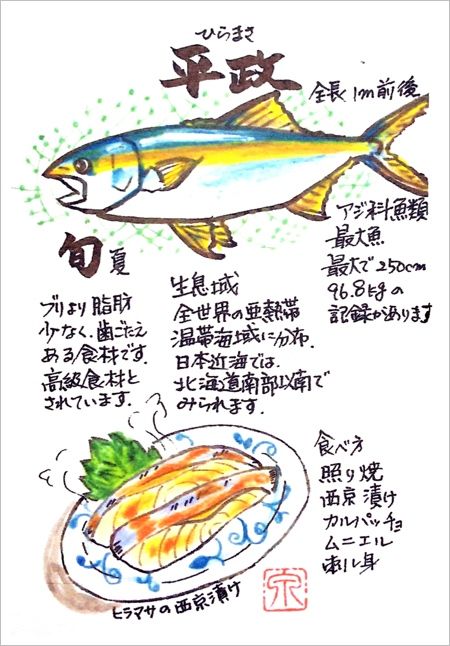 ひらまさ
平政
全長1m前後
アジ科魚類
最大魚
最大で250cm
96.8kgの
記録があります
旬 夏
ブリより脂肪
少なく、歯ごたえ
ある食材です。
高級食材と
されています。
生息域
全世界の亜熱帯
温帯海域に分布。
日本近海では、
北海道南部以南で
みられます。
食べ方
照り焼
西京漬け
カルパッチョ
ムニエル
刺し身
ヒラマサの西京漬け